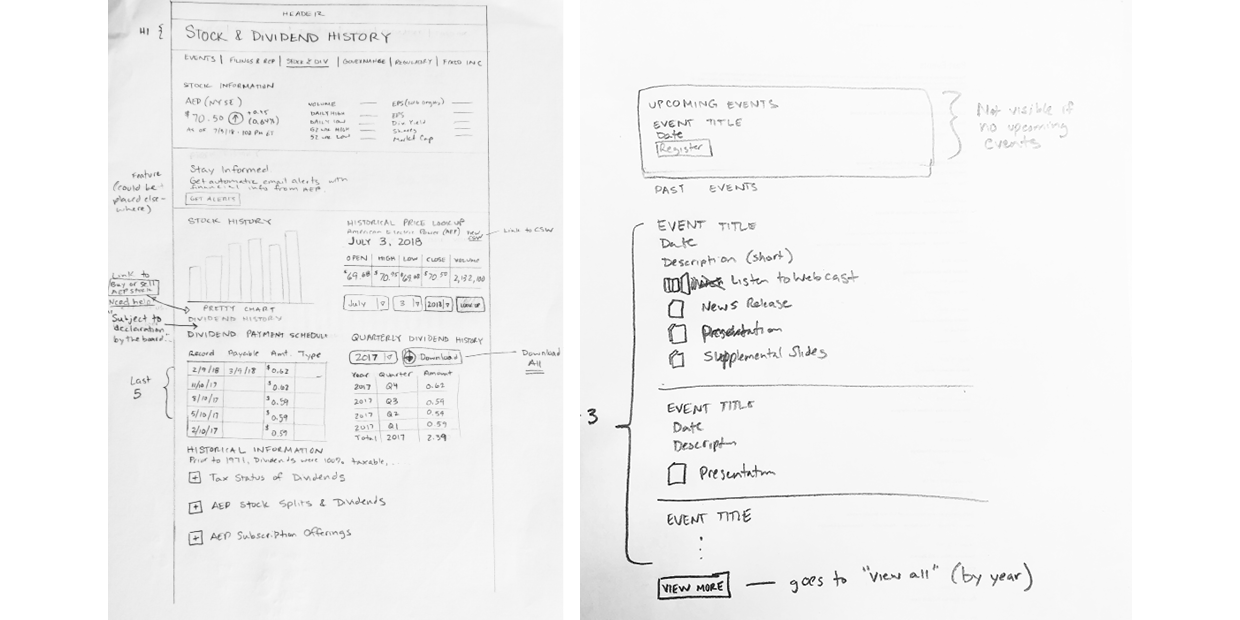 HEADER
H1 {
STOCK & DIVIDEND HISTORY
EVENTS | FILINGS & REP | STOCK & DIV | GOVERNANCE | REGULATORY | FIXED INC
STOCK INFORMATION
AEP (NYSE)
$70.50 ↑ +0.45 (0.64%)
As of 7/9/18
VOLUME
DAILY HIGH
DAILY LOW
52 WK HIGH
52 WK LOW
EPS
EPS
Div Yield
Shares
Market Cap
Feature
(could be
placed else-
where)
Stay Informed
Get automatic email alerts with
financial info from AEP.
GET ALERTS
STOCK HISTORY
PRETTY CHART
HISTORICAL PRICE LOOKUP
American Electric Power (AEP)
JULY 3, 2018
Link to CSW
OPEN | HIGH | LOW | CLOSE | VOLUME
$69.68 $70.95 $69.68 $70.50 2,132,100
July 3 2018 LOOK UP
Link to
Buy or Sell
AEP Stock
Need help
"Subject to
declaration
by the board...
DIVIDEND HISTORY
DIVIDEND PAYMENT SCHEDULE
Record Payable Amt. Type
2/9/18 3/9/18 $0.62
11/10/17 $0.62
8/10/17 $0.59
5/10/17 $0.59
2/10/17 $0.59
Last
5
QUARTERLY DIVIDEND HISTORY
2017 Download
Download
All
Year Quarter Amount
2017 Q4 0.62
2017 Q3 0.59
2017 Q2 0.59
2017 Q1 0.59
Total 2017 2.39
HISTORICAL INFORMATION
Prior to 1971, Dividends were 100% taxable...
+ Tax Status of Dividends
+ AEP Stock Splits & Dividends
+ AEP Subscription Offerings
UPCOMING EVENTS
EVENT TITLE
Date
Register
Not visible if
no upcoming
events
PAST EVENTS
EVENT TITLE
Date
Description (short)
Listen to Webcast
News Release
Presentation
Supplemental Slides
3
EVENT TITLE
Date
Description
Presentation
EVENT TITLE
VIEW MORE — goes to "view all" (by year)